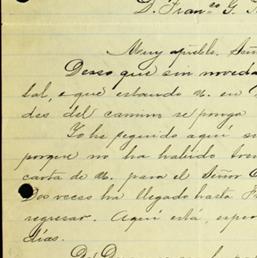 D. Fran.co G.
Muy apreble. Señ
Deseo que sin noveda
sal, e que estando U. en
des del camino se ponga
Yo he seguido aquí s
porque no ha habido tre
carta de U. para el Señor
Dos veces ha llegado hasta
regresar. Aquí está, esper
días.